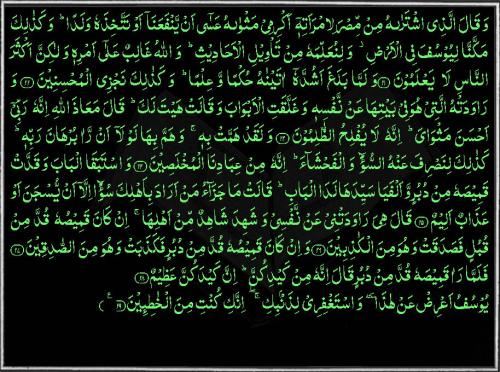 وَ قَالَ الَّذِی اشْتَرٰىهُ مِنْ مِّصْرَ لِامْرَاَتِهٖۤ اَكْرِمِیْ مَثْوٰىهُ عَسٰۤى اَنْ یَّنْفَعَنَاۤ اَوْ نَتَّخِذَهٗ وَلَدًا ؕ وَ كَذٰلِكَ
مَكَّنَّا لِیُوْسُفَ فِی الْاَرْضِ ؗ وَ لِنُعَلِّمَهٗ مِنْ تَاْوِیْلِ الْاَحَادِیْثِ ؕ وَ اللّٰهُ غَالِبٌ عَلٰۤى اَمْرِهٖ وَ لٰكِنَّ اَكْثَرَ
النَّاسِ لَا یَعْلَمُوْنَ ﴿۲۱﴾ وَ لَمَّا بَلَغَ اَشُدَّهٗۤ اٰتَیْنٰهُ حُكْمًا وَّ عِلْمًا ؕ وَ كَذٰلِكَ نَجْزِی الْمُحْسِنِیْنَ ﴿۲۲﴾ وَ
رَاوَدَتْهُ الَّتِیْ هُوَ فِیْ بَیْتِهَا عَنْ نَّفْسِهٖ وَ غَلَّقَتِ الْاَبْوَابَ وَ قَالَتْ هَیْتَ لَكَ ؕ قَالَ مَعَاذَ اللّٰهِ اِنَّهٗ رَبِّیْۤ
اَحْسَنَ مَثْوَایَ ؕ اِنَّهٗ لَا یُفْلِحُ الظّٰلِمُوْنَ ﴿۲۳﴾ وَ لَقَدْ هَمَّتْ بِهٖ ۚ وَ هَمَّ بِهَا لَوْ لَاۤ اَنْ رَّاٰ بُرْهَانَ رَبِّهٖ ؕ
كَذٰلِكَ لِنَصْرِفَ عَنْهُ السُّوْٓءَ وَ الْفَحْشَآءَ ؕ اِنَّهٗ مِنْ عِبَادِنَا الْمُخْلَصِیْنَ ﴿۲۴﴾ وَ اسْتَبَقَا الْبَابَ وَ قَدَّتْ
قَمِیْصَهٗ مِنْ دُبُرٍ وَّ اَلْفَیَا سَیِّدَهَا لَدَا الْبَابِ ؕ قَالَتْ مَا جَزَآءُ مَنْ اَرَادَ بِاَهْلِكَ سُوْٓءًا اِلَّاۤ اَنْ یُّسْجَنَ اَوْ
عَذَابٌ اَلِیْمٌ ﴿۲۵﴾ قَالَ هِیَ رَاوَدَتْنِیْ عَنْ نَّفْسِیْ وَ شَهِدَ شَاهِدٌ مِّنْ اَهْلِهَا ۚ اِنْ كَانَ قَمِیْصُهٗ قُدَّ مِنْ
قُبُلٍ فَصَدَقَتْ وَ هُوَ مِنَ الْكٰذِبِیْنَ ﴿۲۶﴾ وَ اِنْ كَانَ قَمِیْصُهٗ قُدَّ مِنْ دُبُرٍ فَكَذَبَتْ وَ هُوَ مِنَ الصّٰدِقِیْنَ ﴿۲۷﴾
فَلَمَّا رَاٰ قَمِیْصَهٗ قُدَّ مِنْ دُبُرٍ قَالَ اِنَّهٗ مِنْ كَیْدِكُنَّ ؕ اِنَّ كَیْدَكُنَّ عَظِیْمٌ ﴿۲۸﴾
یُوْسُفُ اَعْرِضْ عَنْ هٰذَا ٚ وَ اسْتَغْفِرِیْ لِذَنْۢبِكِ ۖۚ اِنَّكِ كُنْتِ مِنَ الْخٰطِـِٕیْنَ ﴿۲۹﴾